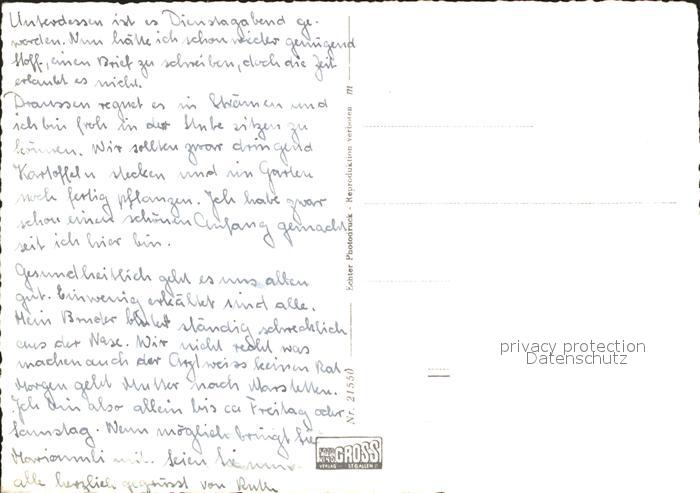 Unterdessen ist es Dienstagabend ge-
worden. Nun hätte ich schon wieder genügend
Stoff, einen Brief zu schreiben, doch die Zeit
erlaubt es nicht.
Draussen regnet es in Strömen und
ich bin froh in der Stube sitzen zu
können. Wir sollten zwar dringend
Kartoffeln stecken und im Garten
noch fertig pflanzen. Ich habe zwar
schon einen schönen Anfang gemacht
seit ich hier bin.
Gesundheitlich geht es uns allen
gut. Einwenig erkältet sind alle.
Mein Bruder blutet ständig schrecklich
aus der Nase. Wir nicht recht was
machen auch der Arzt weiss keinen Rat.
Morgen geht Mutter nach
Ich bin also allein bis ca Freitag oder
Samstag. Wenn möglich bringt sie
mit. Seien Sie nun
alle herzlich gegrüsst von Ruth
Echter Photodruck - Reproduktion verboten
Nr. 21550
FOTO GROSS
VERLAG ST. GALLEN
privacy protection
Datenschutz